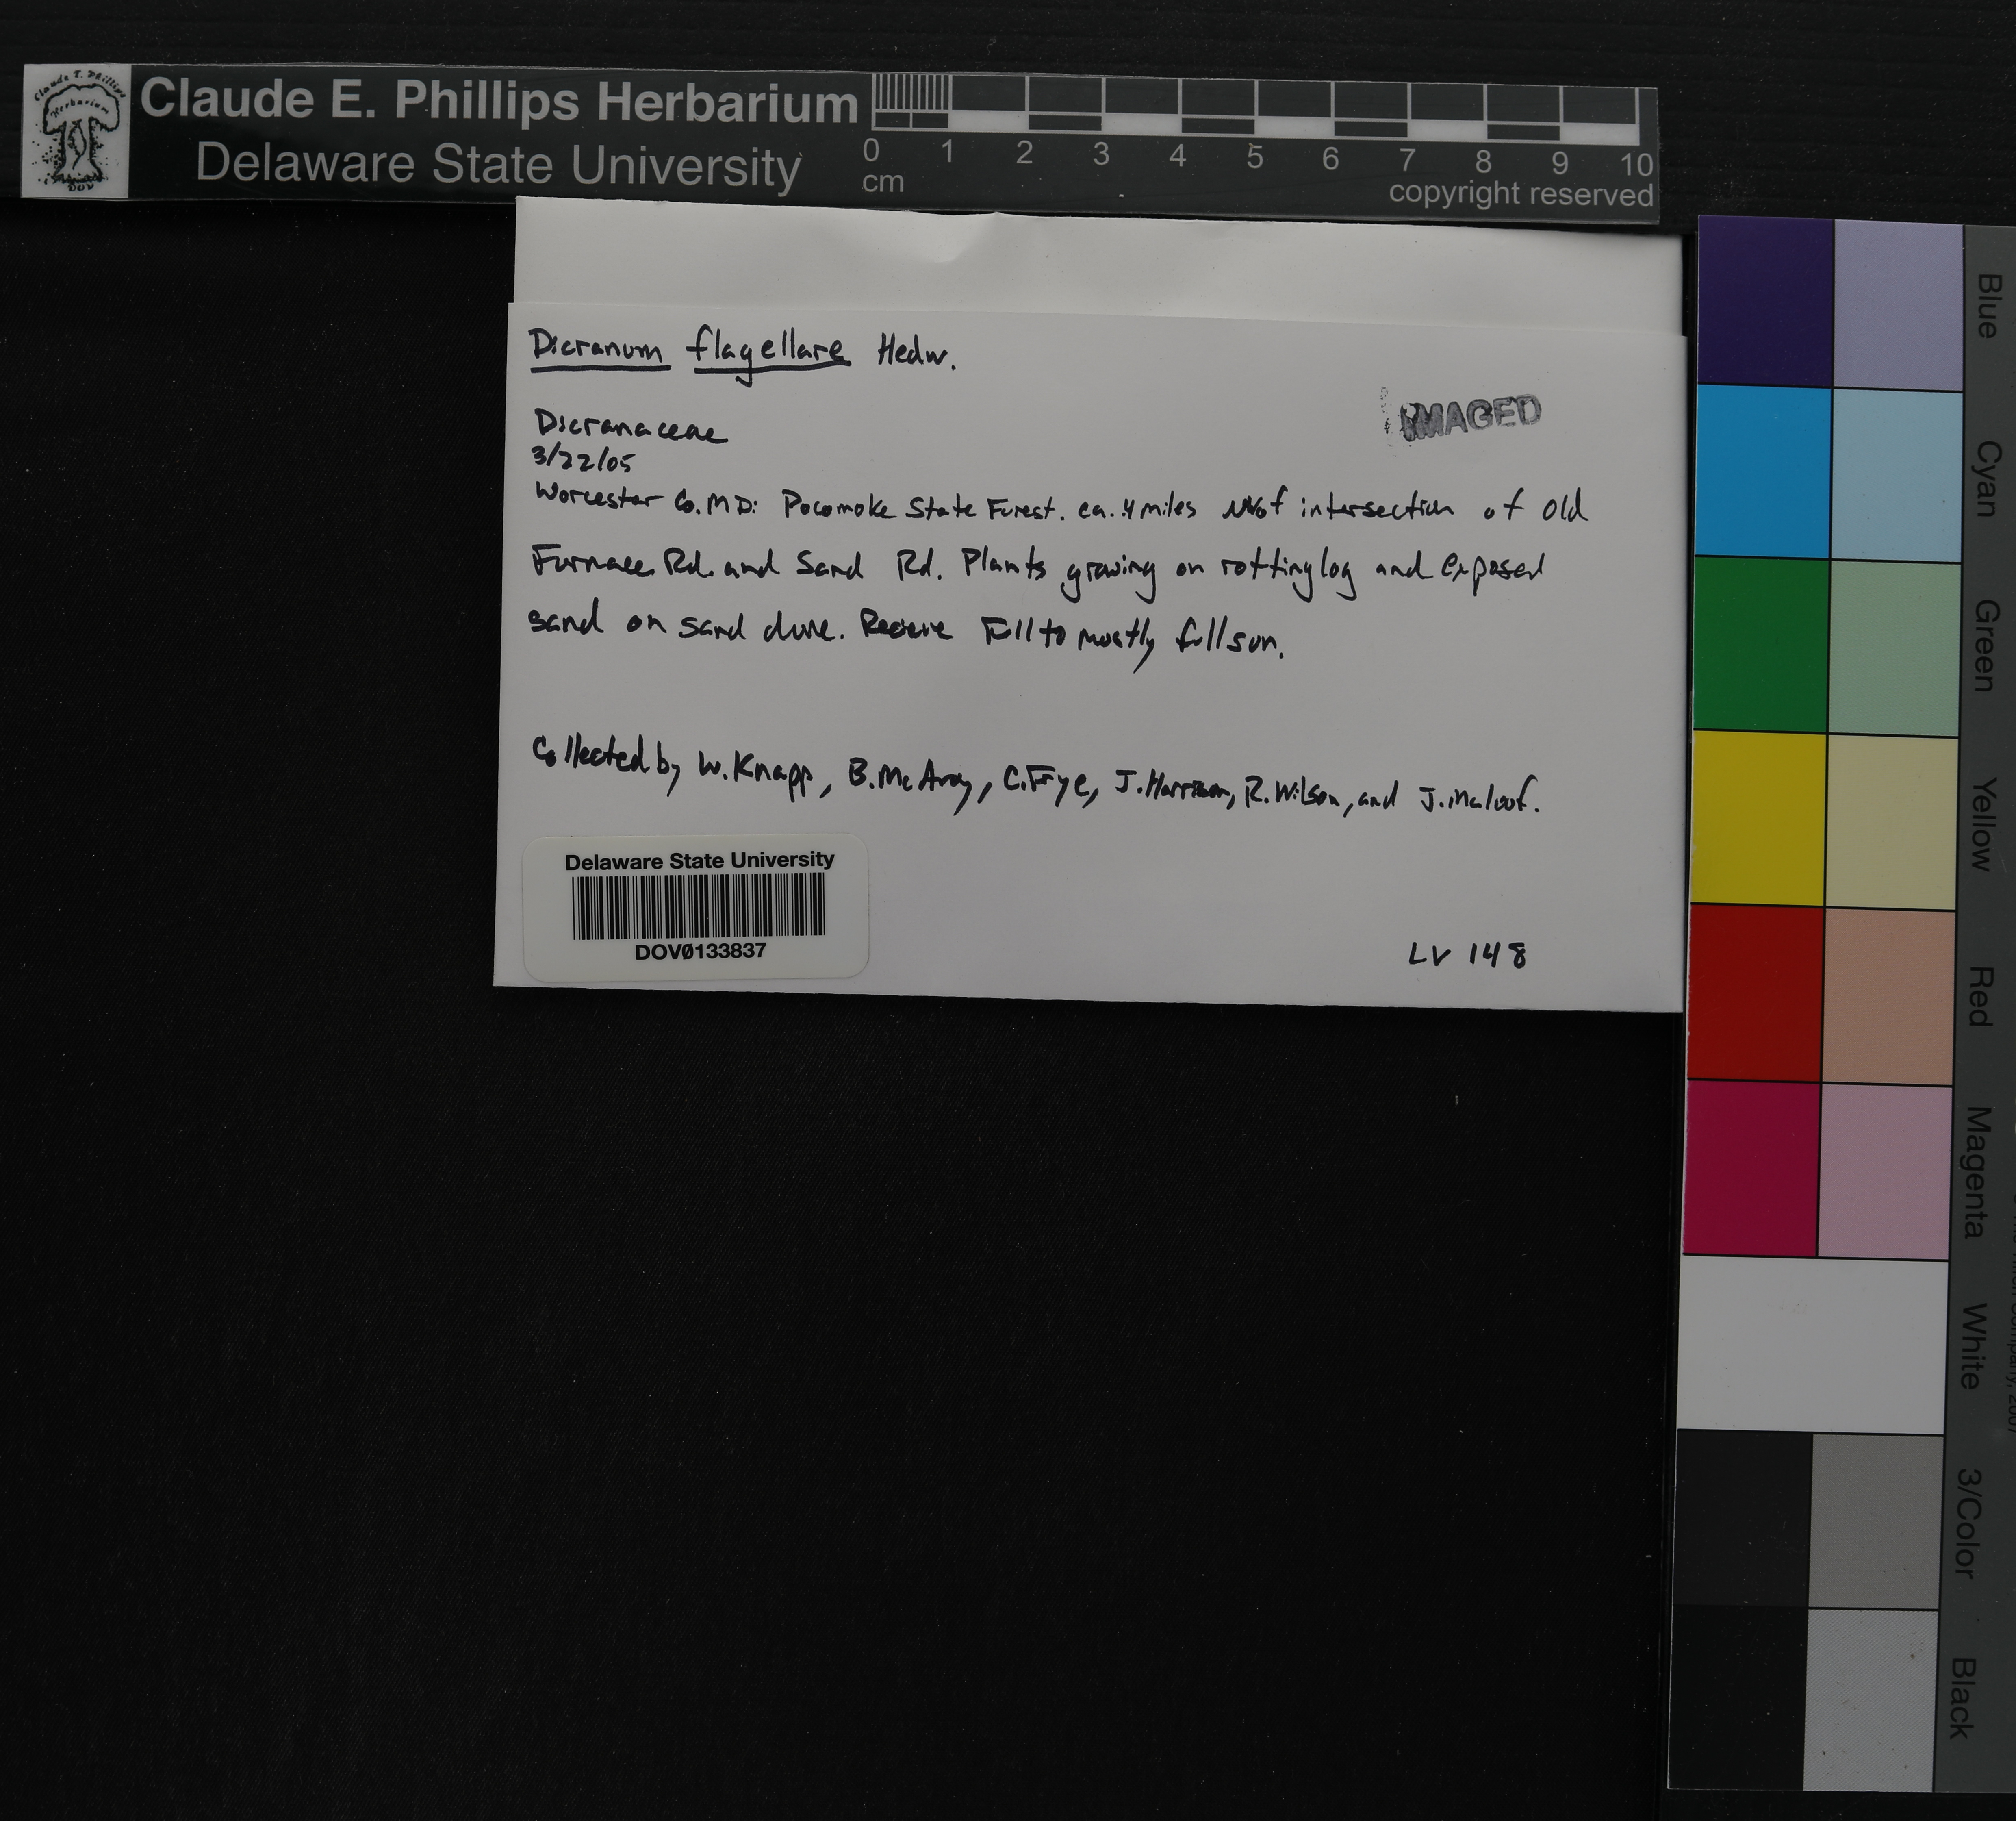 Claude E. Phillips Herbarium
Delaware State University
Claude E. Phillips
Herbarium
DOV
0 1 2 3 4 5 6 7 8 9 10
cm
copyright reserved
Dicranum flagellare Hedw.
IMAGED
Dicranaceae
3/22/05
Worcester Co. MD: Pocomoke State Forest. ca. .4 miles of intersection of Old
Furnace Rd. and Sand Rd. Plants growing on rotting log and exposed
sand on sand dune. Recieve Full to mostly full sun.
Collected by W. Knapp, B. McAvoy, C. Frye, J. Harrison, R. Wilson, and J. Maloof.
Delaware State University
DOV0133837
LV 148
Blue
Cyan
Green
Yellow
Red
Magenta
White
3/Color
Black